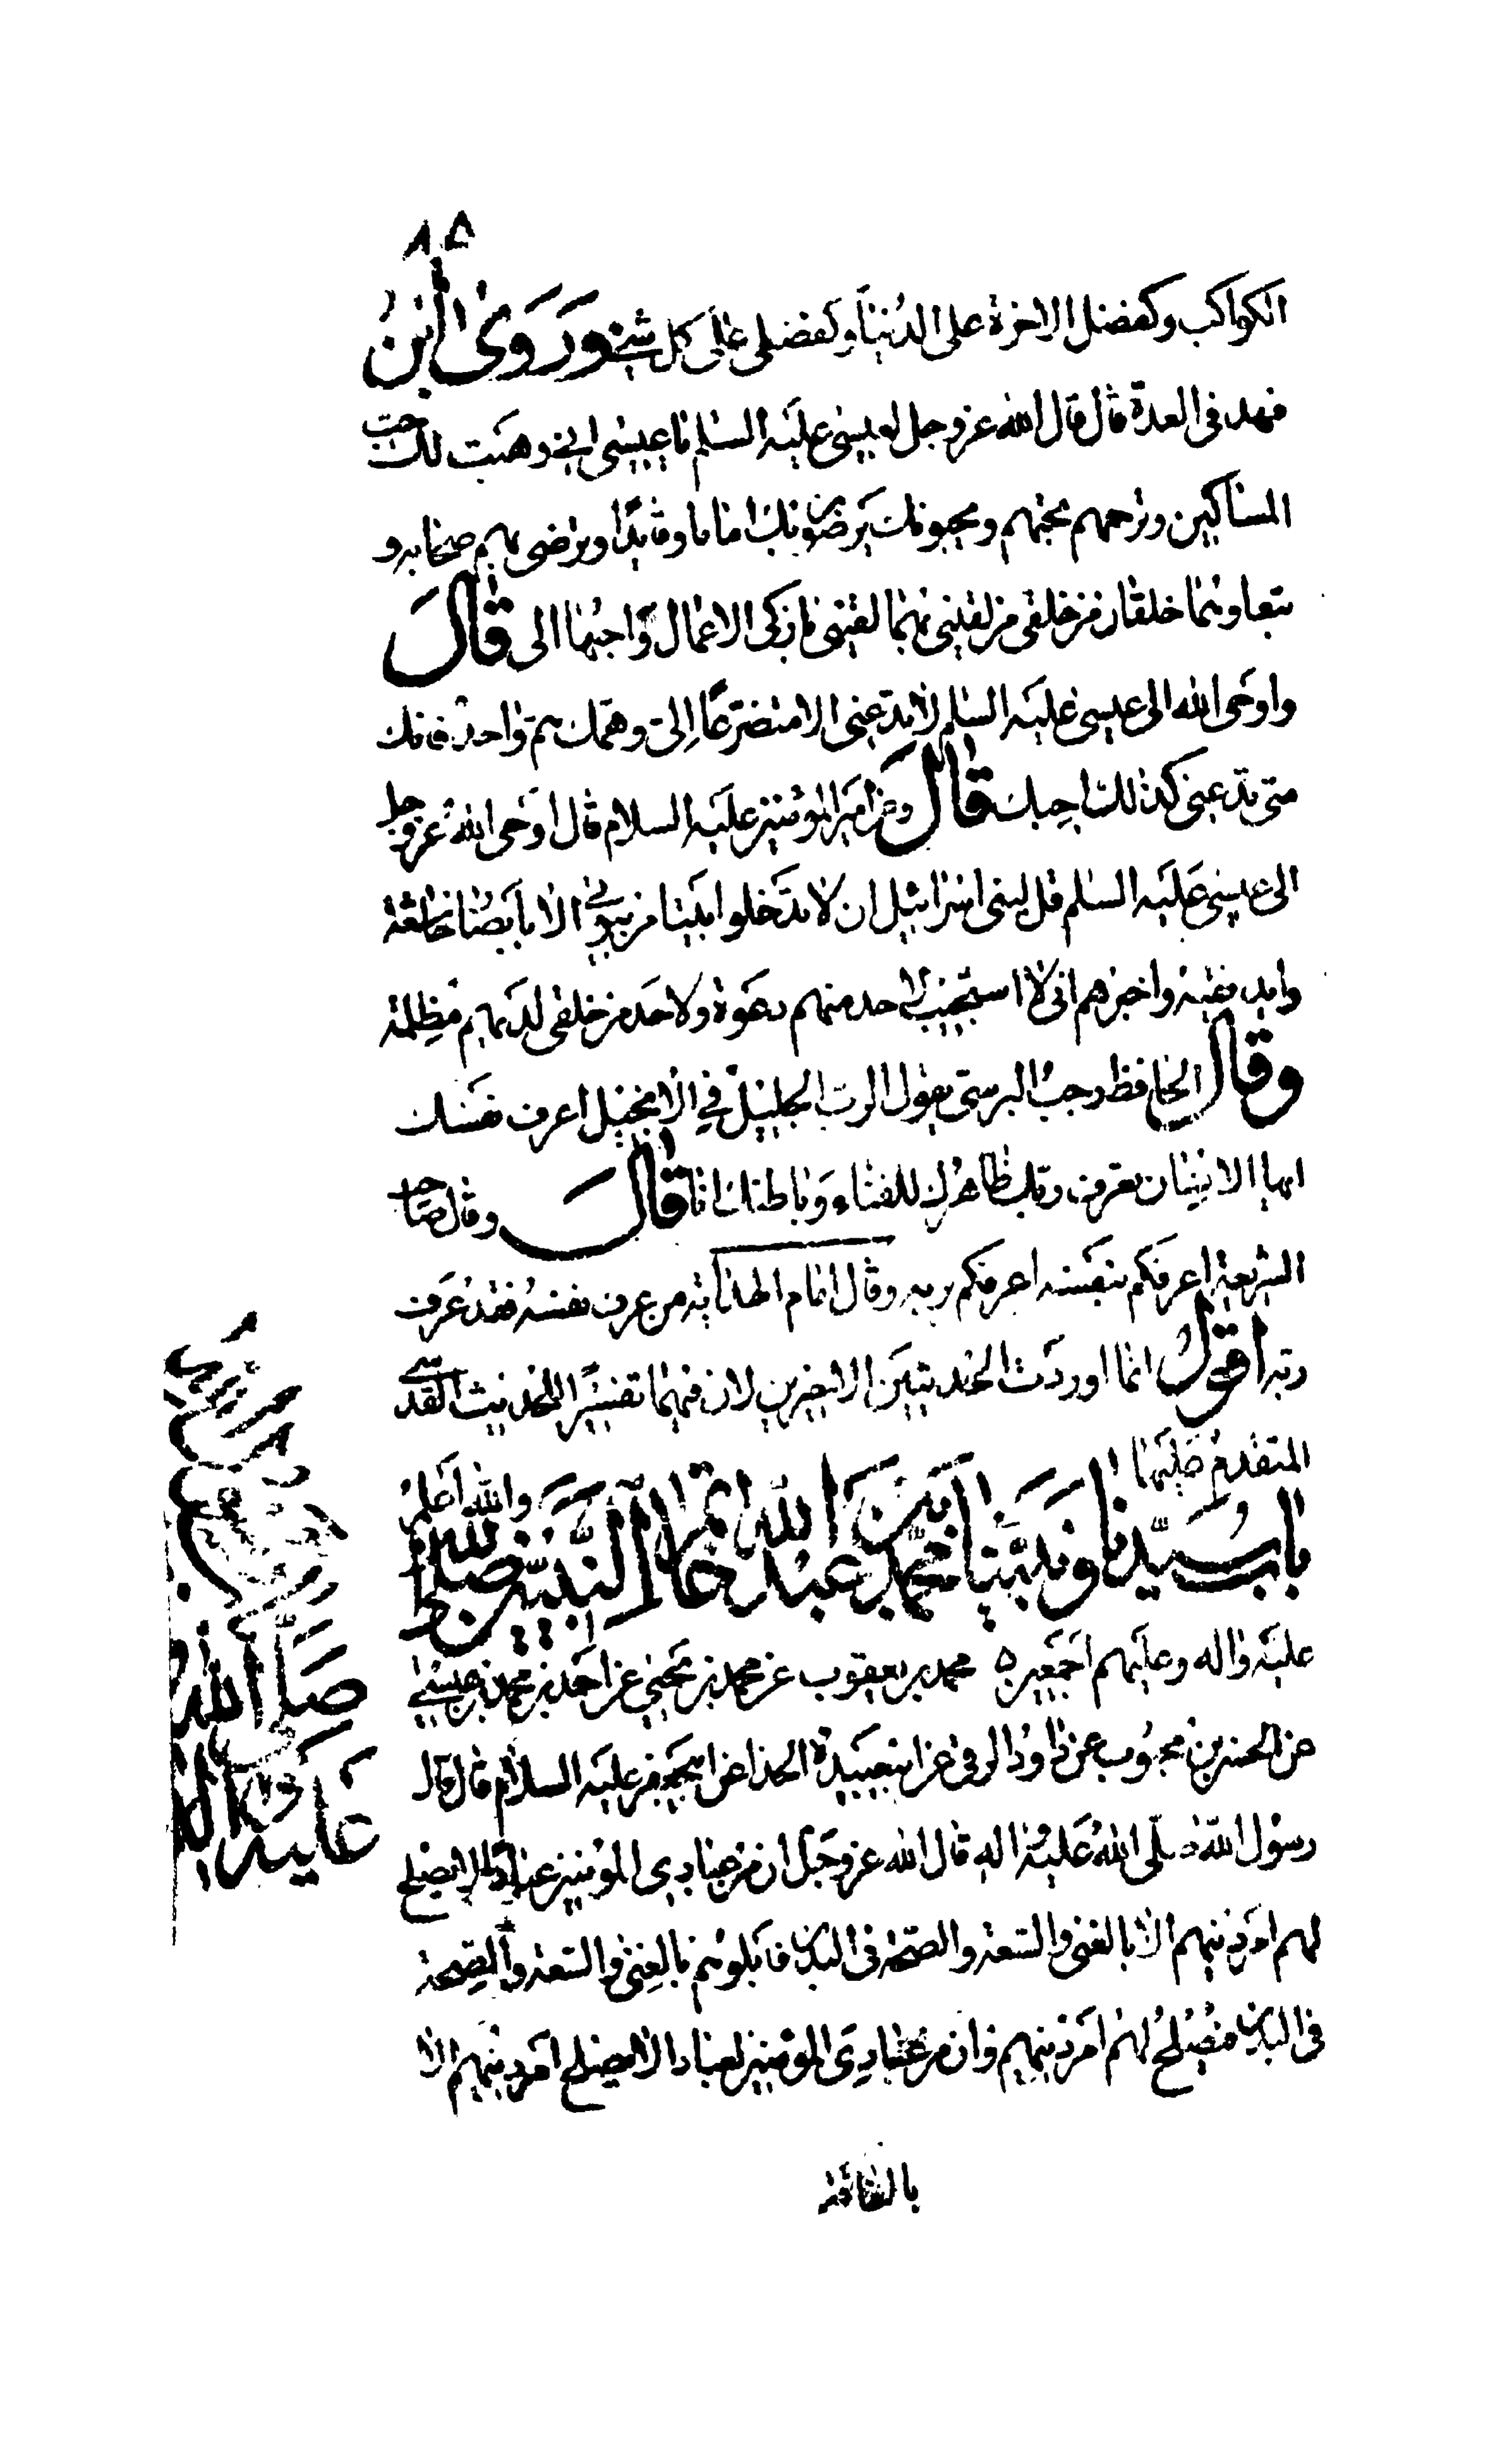 ٨٥
الكواكب وكفضل الاخرة على الدنيا وكفضلي على كل شئ وروى ابن
فهد فى العدة قال قال الله عز وجل لعيسى عليه السلم يا عيسى انى وهبت لك حب
المساكين وترحمهم تحبهم ويحبونك يرضون بك اماما وقايدا وترضى بهم صحابه و
تبعا وهما خلقان من خلقى من لقينى بهما لقينى بازكى الاعمال واحبها الى قال
واوحى الله الى عيسى عليه السلم لا تدعنى الا متضرعا الى وهمك هم واحد فانك
متى تدعنى كذلك اجبك قال وعن امير المؤمنين عليه السلام قال اوحى الله عز وجل
الى عيسى عليه السلم قل لبنى اسرائيل ان لا تدخلوا بيتا من بيوتى الا بابصار خاشعة
وايد نقية واخبرهم انى لا استجيب لاحد منهم دعوة ولاحد من خلقى لديهم مظلمة
وقال الحافظ رجب البرسى يقول الرب الجليل فى الانجيل اعرف نفسك
ايها الانسان تعرف ربك ظاهرك للفناء وباطنك انا قال وقال صاحب
الشريعة اعرفكم بنفسه اعرفكم بربه وقال امام الهداية من عرف نفسه فقد عرف
ربه اقول انما اوردت الحديثين الاخيرين لان فيهما تفسير الحديث القدسى
المتقدم عليهما والله اعلم
باب سيدنا ونبينا محمد بن عبد الله خاتم النبيين صلى الله
عليه واله وعليهم اجمعين ه محمد بن يعقوب عن محمد بن يحيى عن احمد بن محمد بن عيسى
عن الحسن بن محبوب عن داود الرقى عن ابى عبيدة الحذاء عن ابى جعفر عليه السلام قال قال
رسول الله صلى الله عليه واله قال الله عز وجل ان من عبادى المؤمنين عبادا لا يصلح
لهم امر دينهم الا بالغنى والسعة والصحة فى البدن فابلوهم بالغنى والسعة والصحة
فى البدن فيصلح لهم امر دينهم وان من عبادى المؤمنين لعبادا لا يصلح امر دينهم الا
بالفاقة
صلى الله
عليه واله